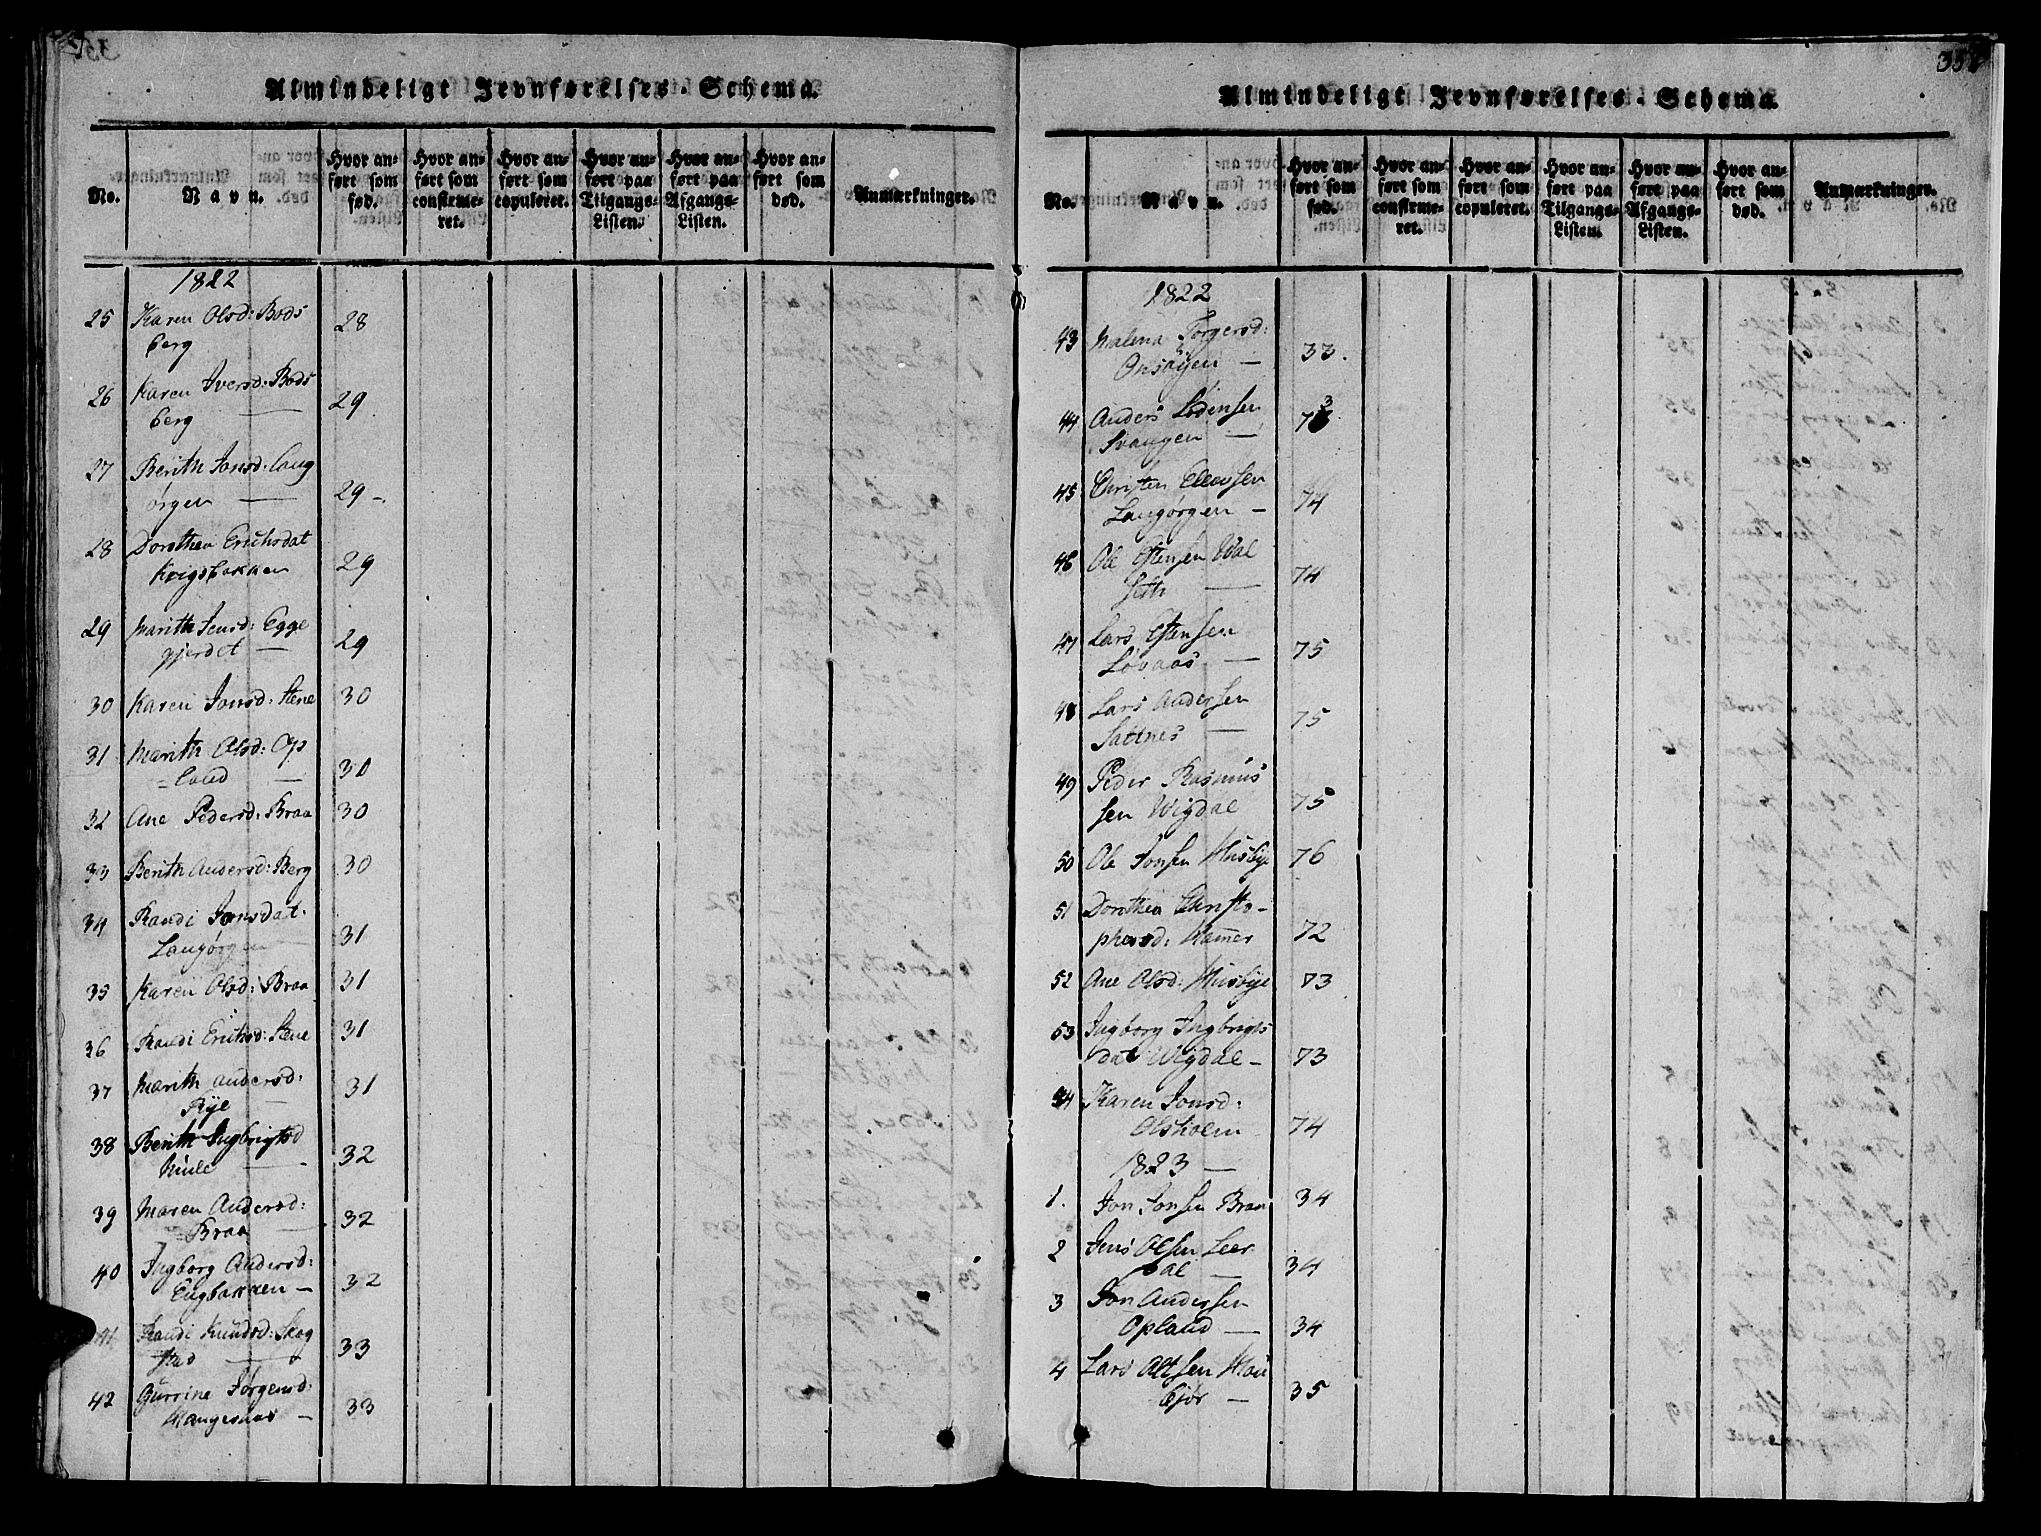 Almindeligt Jevnførelses-Schema.
No.
Navn.
Hvor an-
ført som
fød.
Hvor an-
ført som
confirme-
ret.
Hvor an-
ført som
copuleret.
Hvor an-
ført paa
Tilgangs-
Listen.
Hvor an-
ført paa
Afgangs-
Listen.
Hvor an-
ført som
død.
Anmærkninger.
1822
25 Karen Olsd: Bods
berg 28
26 Karen Iversd: Bods
berg 29
27 Berith Jonsd: Lang
ørgen — 29 -
28 Dorothea Erichsdat
Krigsbakken 29
29 Marith Jensd: Egge
gjerdet — 29
30 Karen Jonsd: Stene 30
31 Marith Olsd: Op
=land — 30
32 Ane Pedersd: Braa 30
33 Berith Andersd: Berg 30
34 Randi Jonsdat.
Langørgen 31
35 Karen Olsd: Braa 31
36 Randi Erichsd: Stene 31
37 Marith Andersd:
Rye — 31
38 Berith Ingbrigtsd
Mule — 32
39 Maren Andersd:
=Braa — 32
40 Ingborg Andersd:
Engbakken — 32
41 Randi Knudsd: Skog
stad — 33
42 Gurrine Jørgensd:
Mangesnas — 33
357
Almindeligt Jevnførelses-Schema.
No.
Navn.
Hvor an-
ført som
fød.
Hvor an-
ført som
confirme-
ret.
Hvor an-
ført som
copuleret.
Hvor an-
ført paa
Tilgangs-
Listen.
Hvor an-
ført paa
Afgangs-
Listen.
Hvor an-
ført som
død.
Anmærkninger.
1822
43 Malena Torgersd:
Onsøyen — 33.
44 Anders Lodensen
Svangen — 73
45 Christen Ellevsen
Langørgen — 74
46 Ole Estensen Wal
seth — 74
47 Lars Estensen
Løvaas — 75
48 Lars Andersen
Sattnes — 75
49 Peder Rasmus
sen Wigdal 75
50 Ole Jonsen Husbye 76
51 Dorthea Christo-
phersd: Hamer 72
52 Ane Olsd: Husbye 73
53 Ingborg Ingbrigts
dat Wigdal — 73
54 Karen Jonsd:
Olsholm 74
1823 —
1. Jon Jonsen Braa 34
2 Jens Olsen Leer
dal — 34
3 Jon Andersen
Opland — 34
4 Lars Oltsen Hou
bjør — 35